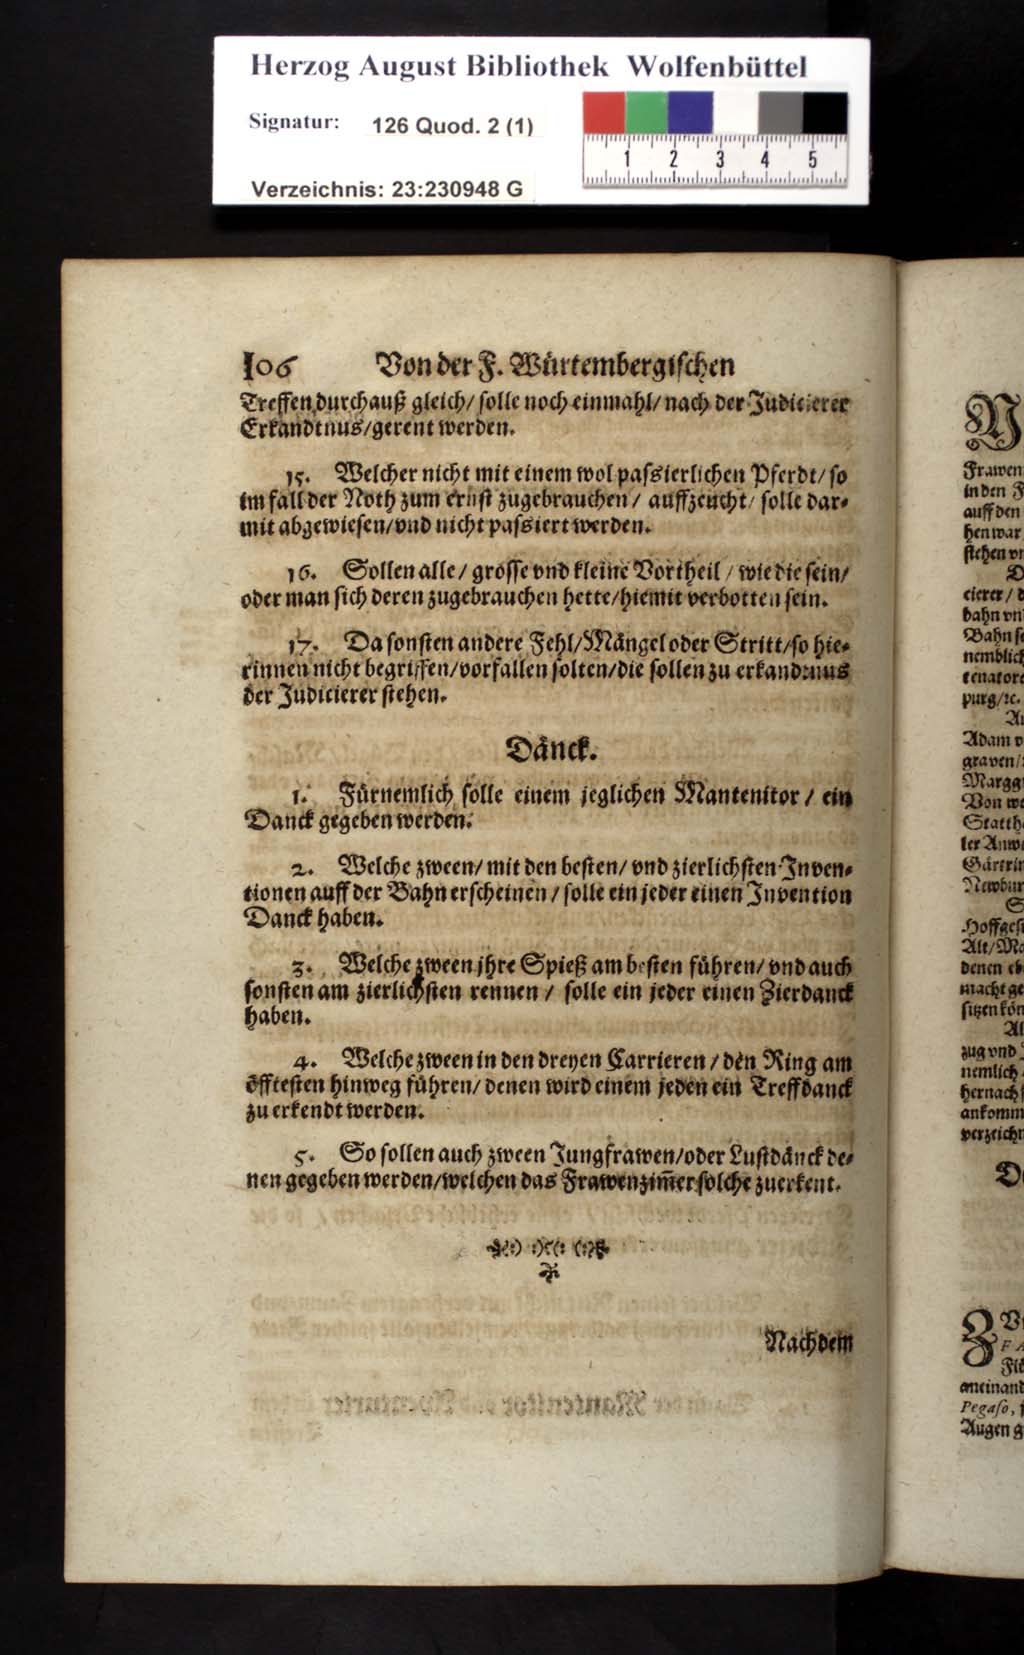 Herzog August Bibliothek Wolfenbüttel
Signatur: 126 Quod. 2 (1)
1 2 3 4 5
Verzeichnis: 23:230948 G
106 Von der F. Würtembergischen
Treffen durchauß gleich/ solle noch einmahl/ nach der Judicierer
Erkandtnus/gerent werden.
15. Welcher nicht mit einem wol passierlichen Pferdt/ so
im fall der Noth zum ernst zugebrauchen/ auffzeucht/ solle dar-
mit abgewiesen/vnd nicht passiert werden.
16. Sollen alle/ grosse vnd kleine Vortheil/ wie die sein/
oder man sich deren zugebrauchen hette/hiemit verbotten sein.
17. Da sonsten andere Fehl/Mängel oder Stritt/so hie-
rinnen nicht begriffen/vorfallen solten/die sollen zu erkandtnus
der Judicierer stehen.
Dänck.
1. Fürnemlich solle einem jeglichen Mantenitor/ ein
Danck gegeben werden.
2. Welche zween/ mit den besten/ vnd zierlichsten Inven-
tionen auff der Bahn erscheinen/ solle ein jeder einen Invention
Danck haben.
3. Welche zween jhre Spieß am besten führen/ vnd auch
sonsten am zierlichsten rennen/ solle ein jeder einen Zierdanck
haben.
4. Welche zween in den dreyen Carrieren/ den Ring am
öfftesten hinweg führen/ denen wird einem jeden ein Treffdanck
zu erkendt werden.
5. So sollen auch zween Jungfrawen/oder Lustdänck de-
nen gegeben werden/welchen das Frawenzim̃er solche zuerkent.
Nachdem
Frawen
in den F
auff den
hen war
stehen vn
D
cierer/ d
bahn vn
Bahn se
nemblich
tenatore
purg/ꝛc.
Adam v
graven/
Marggr
Von we
Statth
ler Anw
Gärtrin
Newbur
S
Hoffgesi
Alt/Ma
denen eb
macht ge
sitzen kön
Al
zug vnd
nemlich
hernach
ankomm
verzeichn
D
ZV
FA
Fü
aneinand
Pegaso,
Augen g